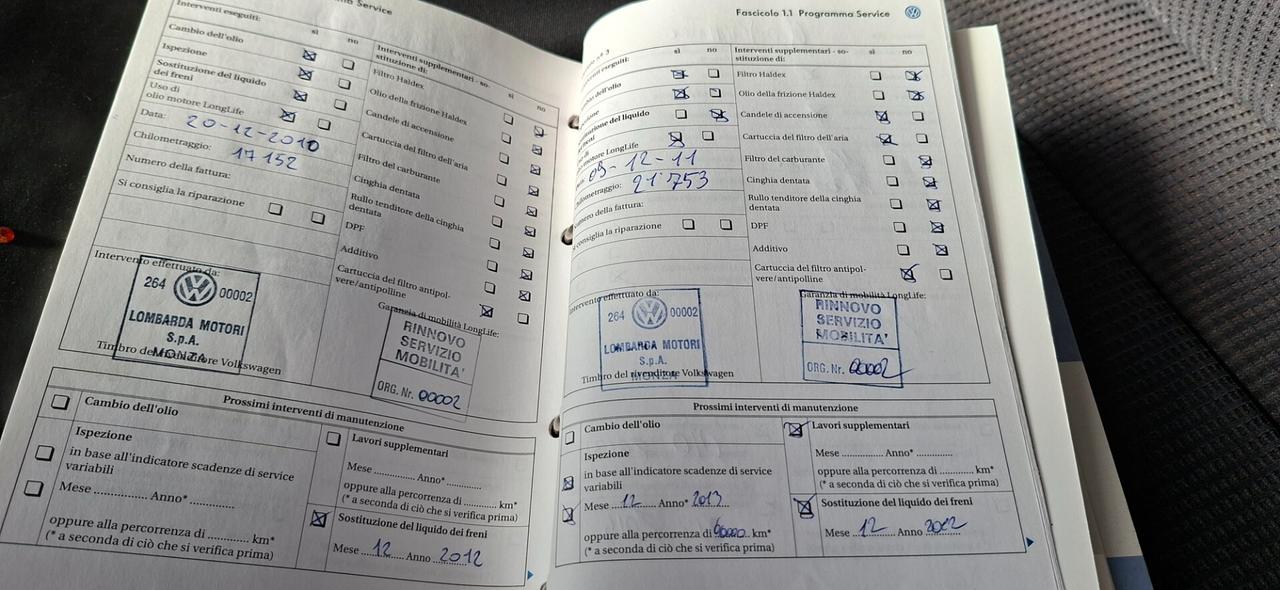 ma Service
Interventi eseguiti:
sì
no
Cambio dell'olio
Ispezione
Sostituzione del liquido
dei freni
Uso di
olio motore LongLife
Data: 20-12-2010
Chilometraggio: 17152
Numero della fattura:
Si consiglia la riparazione
Intervento effettuato da:
264 00002
LOMBARDA MOTORI
S.p.A.
MONZA
Timbro del rivenditore Volkswagen
Interventi supplementari - so-
stituzione di:
sì
no
Filtro Haldex
Olio della frizione Haldex
Candele di accensione
Cartuccia del filtro dell'aria
Filtro del carburante
Cinghia dentata
Rullo tenditore della cinghia
dentata
DPF
Additivo
Cartuccia del filtro antipol-
vere/antipolline
Garanzia di mobilità LongLife:
RINNOVO
SERVIZIO
MOBILITA'
ORG. Nr. 00002
Prossimi interventi di manutenzione
Cambio dell'olio
Ispezione
in base all'indicatore scadenze di service
variabili
Mese .............. Anno* ..............
oppure alla percorrenza di ............ km*
(* a seconda di ciò che si verifica prima)
Lavori supplementari
Mese ............ Anno* ............
oppure alla percorrenza di .......... km*
(* a seconda di ciò che si verifica prima)
Sostituzione del liquido dei freni
Mese 12 Anno 2012
Fascicolo 1.1 Programma Service
sì
no
dell'olio
del liquido
motore LongLife
09-12-11
Chilometraggio: 21'753
Numero della fattura:
Si consiglia la riparazione
Intervento effettuato da:
264 00002
LOMBARDA MOTORI
S.p.A.
MONZA
Timbro del rivenditore Volkswagen
Interventi supplementari - so-
stituzione di:
sì
no
Filtro Haldex
Olio della frizione Haldex
Candele di accensione
Cartuccia del filtro dell'aria
Filtro del carburante
Cinghia dentata
Rullo tenditore della cinghia
dentata
DPF
Additivo
Cartuccia del filtro antipol-
vere/antipolline
Garanzia di mobilità LongLife:
RINNOVO
SERVIZIO
MOBILITA'
ORG. Nr. 00002
Prossimi interventi di manutenzione
Cambio dell'olio
Ispezione
in base all'indicatore scadenze di service
variabili
Mese 12 Anno* 2013
oppure alla percorrenza di km*
(* a seconda di ciò che si verifica prima)
Lavori supplementari
Mese ............ Anno* ............
oppure alla percorrenza di ............ km*
(* a seconda di ciò che si verifica prima)
Sostituzione del liquido dei freni
Mese 12 Anno 2012